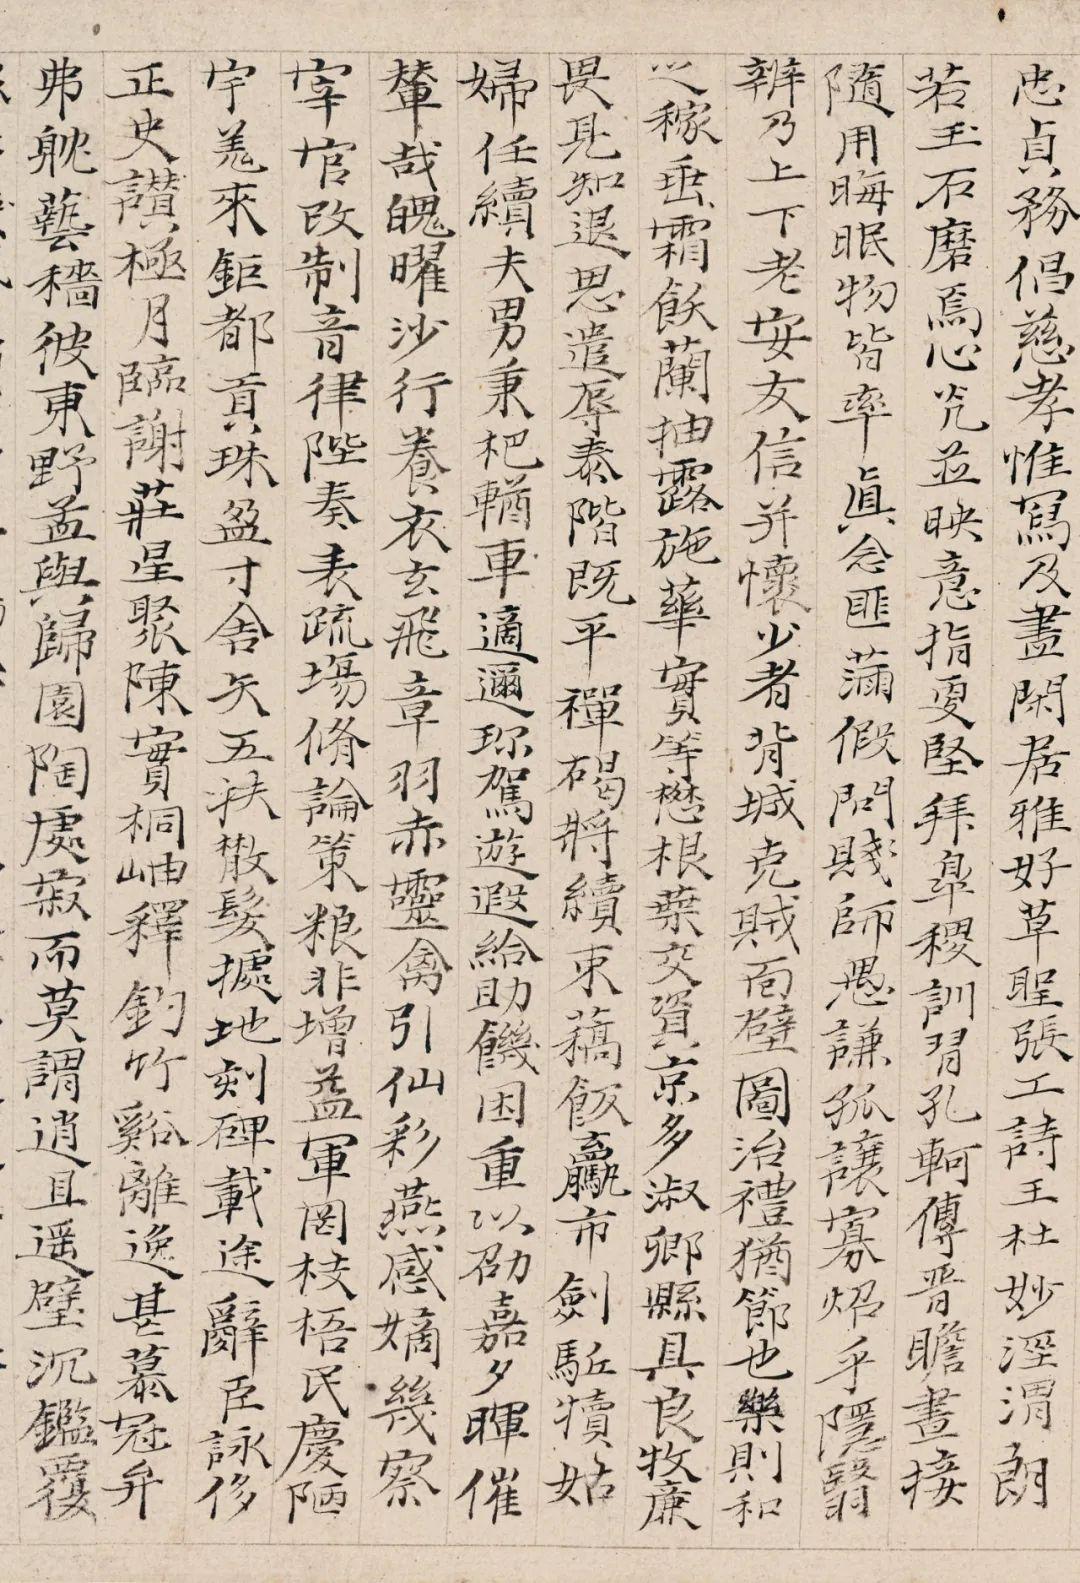 忠貞務倡慈孝惟寫及晝閑居雅好草聖張工詩王杜妙涇渭朗
若玉石磨焉心光並映意指夐堅拜皐稷訓習孔軻傳晋瞻晝接
隨用晦眠物皆率真念匪滿假問賤師愚謙孤讓寡炤乎隱翳
辨乃上下老安友信并懷少者背城克賊面壁圖治禮猶節也樂則和
之稼垂霜飫蘭抽露施華實等懋根葉交資京多淑卿縣具良牧廉
畏見知退思遣辱泰階既平禪碣將續束藁飯羸市劍駈犢姑
婦任續夫男秉杷輶車適邇珎駕遊遐給助饑困重以劭嘉夕暉催
輦哉魄曜沙行養衣玄飛章羽赤靈禽引仙彩燕感嫡幾察
宰官改制音律陛奏表疏場脩論策粮非增益軍罔枝梧民慶陋
宇羗來鉅都貢珠盈寸舍矢五扶散髮據地刻碑載途辭臣詠侈
正史讃極月臨謝莊星聚陳實桐岫釋釣竹谿離逸甚慕冠弁
弗躭藝穡彼東野孟與歸園陶處寂而莫謂逍且遥璧沉鑑覆